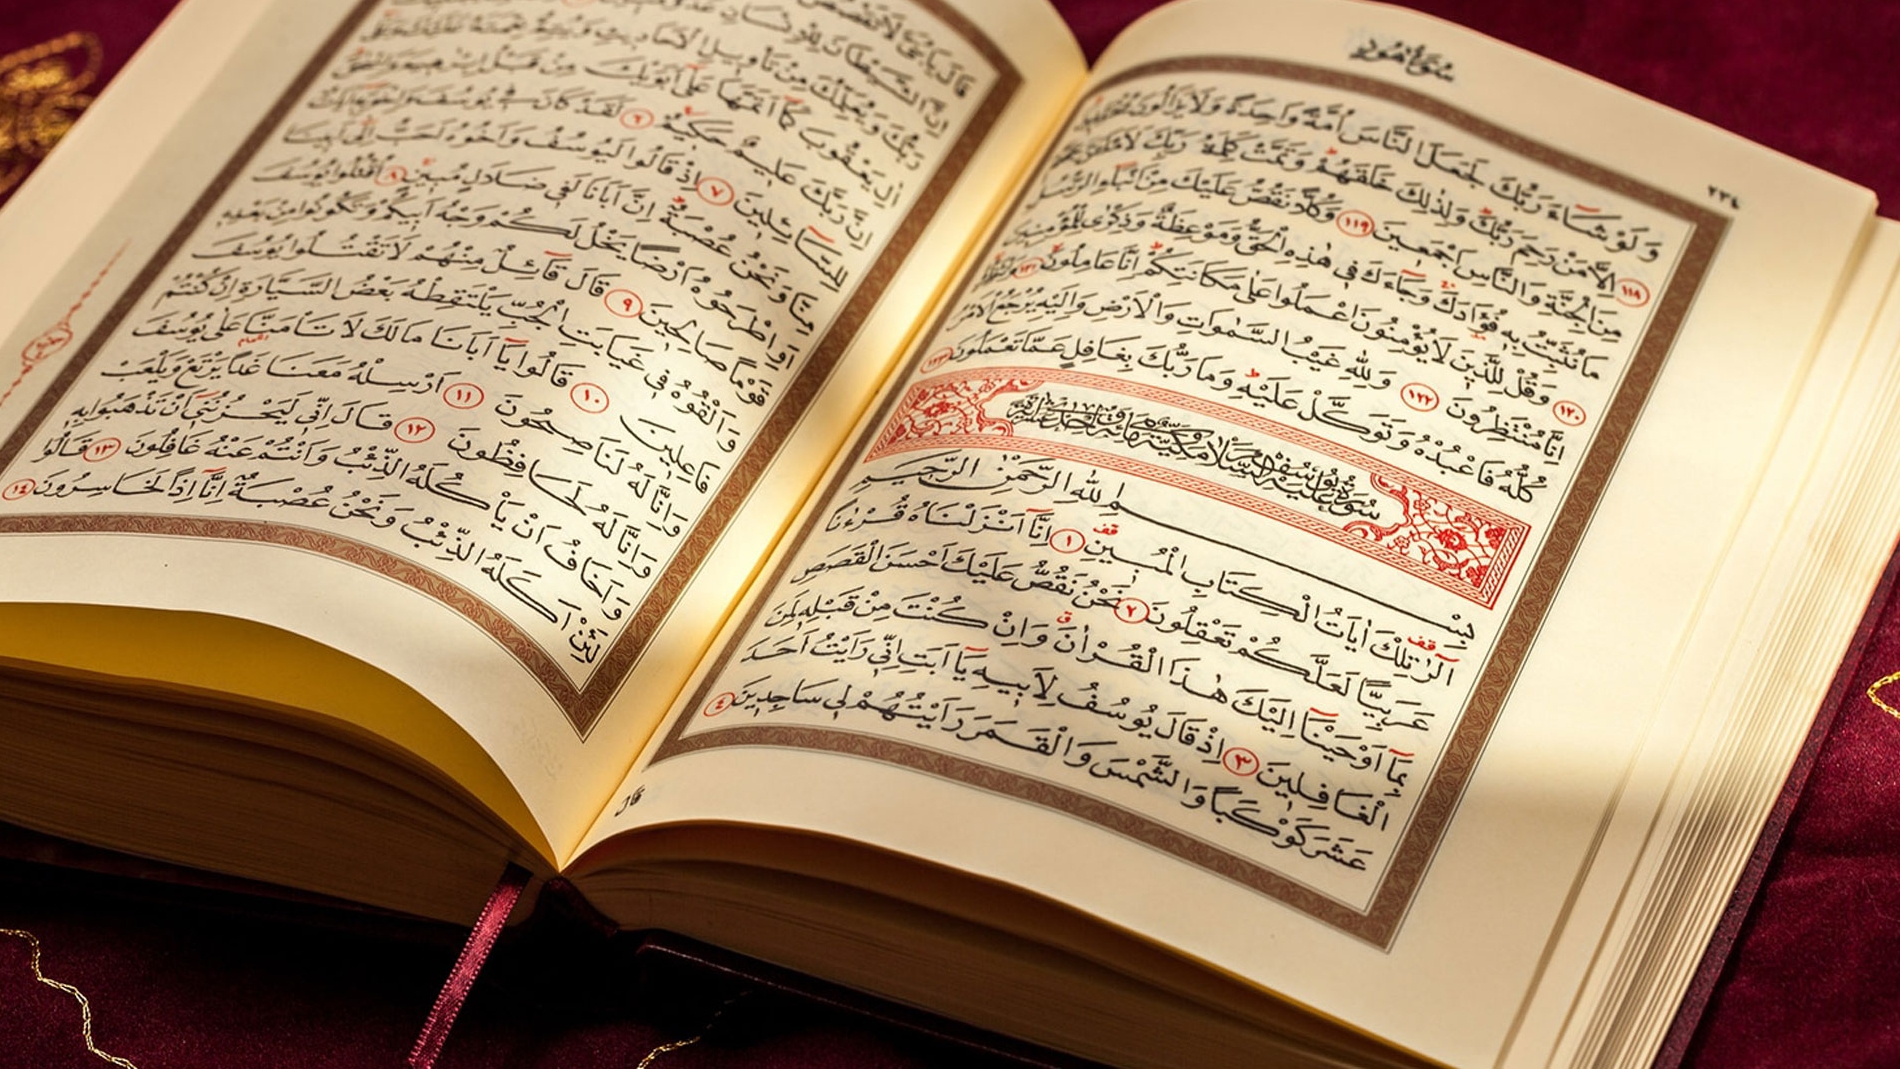 سورة هود
٢٣٤
وَلَوْ شَٓاءَ رَبُّكَ لَجَعَلَ النَّاسَ اُمَّةً وَاحِدَةً وَلَا يَزَالُونَ مُخْتَلِفِينَ
﴿١١٨﴾ اِلَّا مَنْ رَحِمَ رَبُّكَ وَلِذٰلِكَ خَلَقَهُمْ وَتَمَّتْ كَلِمَةُ رَبِّكَ لَاَمْلَـَٔنَّ جَهَنَّمَ
مِنَ الْجِنَّةِ وَالنَّاسِ اَجْمَعِينَ ﴿١١٩﴾ وَكُلًّا نَقُصُّ عَلَيْكَ مِنْ اَنْبَٓاءِ الرُّسُلِ
مَا نُثَبِّتُ بِهِ فُؤٰادَكَ وَجَٓاءَكَ فِي هٰذِهِ الْحَقُّ وَمَوْعِظَةٌ وَذِكْرٰى لِلْمُؤْمِنِينَ
﴿١٢٠﴾ وَقُلْ لِلَّذِينَ لَا يُؤْمِنُونَ اعْمَلُوا عَلٰى مَكَانَتِكُمْ اِنَّا عَامِلُونَ ﴿١٢١﴾ وَانْتَظِرُوا
اِنَّا مُنْتَظِرُونَ ﴿١٢٢﴾ وَلِلّٰهِ غَيْبُ السَّمٰوَاتِ وَالْاَرْضِ وَاِلَيْهِ يُرْجَعُ الْاَمْرُ
كُلُّهُ فَاعْبُدْهُ وَتَوَكَّلْ عَلَيْهِ وَمَا رَبُّكَ بِغَافِلٍ عَمَّا تَعْمَلُونَ ﴿١٢٣﴾
سورة يوسف عليه السلام مكية
بِسْمِ اللهِ الرَّحْمٰنِ الرَّحِيمِ
الٓرٰ قف تِلْكَ اٰيَاتُ الْكِتَابِ الْمُبِينِ قف ﴿١﴾ اِنَّٓا اَنْزَلْنَاهُ قُرْءٰنًا
عَرَبِيًّا لَعَلَّكُمْ تَعْقِلُونَ ﴿٢﴾ نَحْنُ نَقُصُّ عَلَيْكَ اَحْسَنَ الْقَصَصِ
بِمَٓا اَوْحَيْنَٓا اِلَيْكَ هٰذَا الْقُرْاٰنَ ق وَاِنْ كُنْتَ مِنْ قَبْلِهِ لَمِنَ
الْغَافِلِينَ ﴿٣﴾ اِذْ قَالَ يُوسُفُ لِاَبِيهِ يَٓا اَبَتِ اِنِّي رَاَيْتُ اَحَدَ
عَشَرَ كَوْكَبًا وَالشَّمْسَ وَالْقَمَرَ رَاَيْتُهُمْ لِي سَاجِدِينَ ﴿٤﴾
قال
قَالَ يَا بُنَيَّ لَا تَقْصُصْ
اِنَّ الشَّيْطَانَ لِلْاِنْسَانِ عَدُوٌّ
رَبُّكَ وَيُعَلِّمُكَ مِنْ تَأْوِيلِ الْاَحَادِيثِ وَيُتِمُّ نِعْمَتَهُ عَلَيْكَ وَعَلٰى
اٰلِ يَعْقُوبَ كَمَٓا اَتَمَّهَا عَلٰٓى اَبَوَيْكَ مِنْ قَبْلُ اِبْرٰهِيمَ وَاِسْحٰقَ
اِنَّ رَبَّكَ عَلِيمٌ حَكِيمٌ ﴿٦﴾ لَقَدْ كَانَ فِي يُوسُفَ وَاِخْوَتِهِ اٰيَاتٌ
لِلسَّٓائِلِينَ ﴿٧﴾ اِذْ قَالُوا لَيُوسُفُ وَاَخُوهُ اَحَبُّ اِلٰٓى اَبِينَا
مِنَّا وَنَحْنُ عُصْبَةٌ اِنَّ اَبَانَا لَفِي ضَلَالٍ مُبِينٍ ﴿٨﴾ اُقْتُلُوا يُوسُفَ
اَوِ اطْرَحُوهُ اَرْضًا يَخْلُ لَكُمْ وَجْهُ اَبِيكُمْ وَتَكُونُوا مِنْ بَعْدِهِ
قَوْمًا صَالِحِينَ ﴿٩﴾ قَالَ قَٓائِلٌ مِنْهُمْ لَا تَقْتُلُوا يُوسُفَ
وَاَلْقُوهُ فِي غَيَابَتِ الْجُبِّ يَلْتَقِطْهُ بَعْضُ السَّيَّارَةِ اِنْ كُنْتُمْ
فَاعِلِينَ ﴿١٠﴾ قَالُوا يَٓا اَبَانَا مَا لَكَ لَا تَأْمَنَّا عَلٰى يُوسُفَ
وَاِنَّا لَهُ لَنَاصِحُونَ ﴿١١﴾ اَرْسِلْهُ مَعَنَا غَدًا يَرْتَعْ وَيَلْعَبْ
وَاِنَّا لَهُ لَحَافِظُونَ ﴿١٢﴾ قَالَ اِنِّي لَيَحْزُنُنِٓي اَنْ تَذْهَبُوا بِهِ
وَاَخَافُ اَنْ يَأْكُلَهُ الذِّئْبُ وَاَنْتُمْ عَنْهُ غَافِلُونَ ﴿١٣﴾ قَالُوا
لَئِنْ اَكَلَهُ الذِّئْبُ وَنَحْنُ عُصْبَةٌ اِنَّٓا اِذًا لَخَاسِرُونَ ﴿١٤﴾